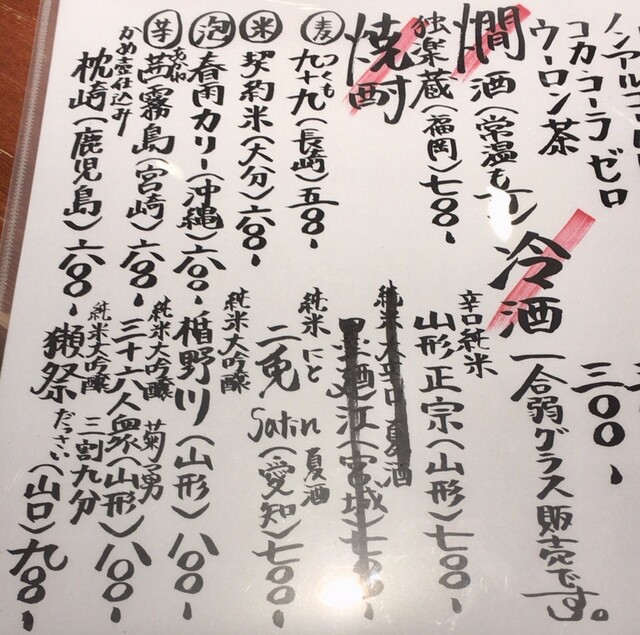 ノンアル
コカ・コーラゼロ
ウーロン茶
三〇〇、
燗酒（常温もオシ
独楽蔵（福岡）七〇〇、
焼酎
麦 つくも
九十九（長崎）五〇〇、
米 契約米（大分）六〇〇、
泡 春雨カリー（沖縄）六〇〇、
芋 あかね
茜霧島（宮崎）六〇〇、
かめ壺仕込み
枕崎（鹿児島）六〇〇、
冷酒 一合弱グラス販売です。
辛口純米
山形正宗（山形）七〇〇、
純米 夏酒
（宮城）七〇〇、
純米 にと 夏酒
二兎 Satin（愛知）七〇〇、
純米大吟醸
楯野川（山形）八〇〇、
純米大吟醸 菊勇
三十六人衆（山形）八〇〇、
純米大吟醸 三割九分
獺祭 だっさい（山口）九〇〇、